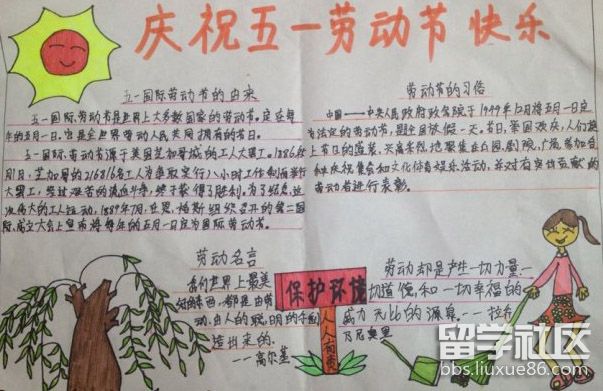 庆祝五一劳动节快乐
五一国际劳动节的由来
五一国际劳动节是世界上大多数国家的劳动节。定在每
年的五月一日。它是全世界劳动人民共同拥有的节日。
五一国际劳动节源于美国芝加哥城的工人大罢工。1886年5
月1日,芝加哥的21.6万名工人为争取实行八小时工作制而举行
大罢工,经过艰苦的流血斗争,终于获得了胜利。为了纪念这
次伟大的工人运动,1889年7月,在恩格斯组织召开的第二国
际成立大会上宣布将每年的五月一日定为国际劳动节。
劳动节的习俗
中国——中央人民政府政务院于1949年12月将五月一日定
为法定的劳动节,全国放假一天。节日,举国欢庆,人们换
上节日的盛装,兴高采烈地聚集在公园,剧院,广场,参加各
种庆祝集会和文化体育娱乐活动,并对有突出贡献的
劳动者进行表彰。
劳动名言
我们世界上最美
好的东西,都是由劳
动、由人的聪明的手创
造出来的。
——高尔基
保护环境
人人有责
劳动却是产生一切力量、一
切道德和一切幸福的
威力无比的源泉。——拉·乔
万尼奥里
留学社区
bbs.liuxue86.com